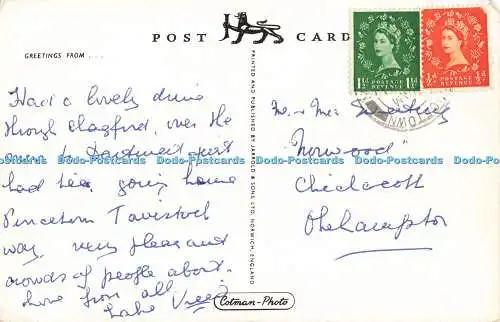 POST CARD
GREETINGS FROM . . .
Had a lovely drive
through Chagford, over the
moors to Dartmeet just
had tea, going home
Princetown Tavistock
way, very pleasant
crowds of people about.
Love from all
PRINTED AND PUBLISHED BY JARROLD & SONS LTD. NORWICH, ENGLAND
Cotman-Photo
1½d POSTAGE REVENUE 1½d
½d POSTAGE REVENUE ½d
TOWN
Mr & Mrs
"Norwood"
Chidacott
Okehampton
Dodo-Postcards Dodo-Postcards Dodo-Postcards Dodo-Postcards Dodo-Postcards